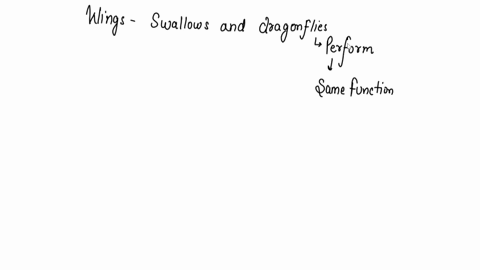 Wings - Swallows and dragonflies
↳ Perform
↓
Same function